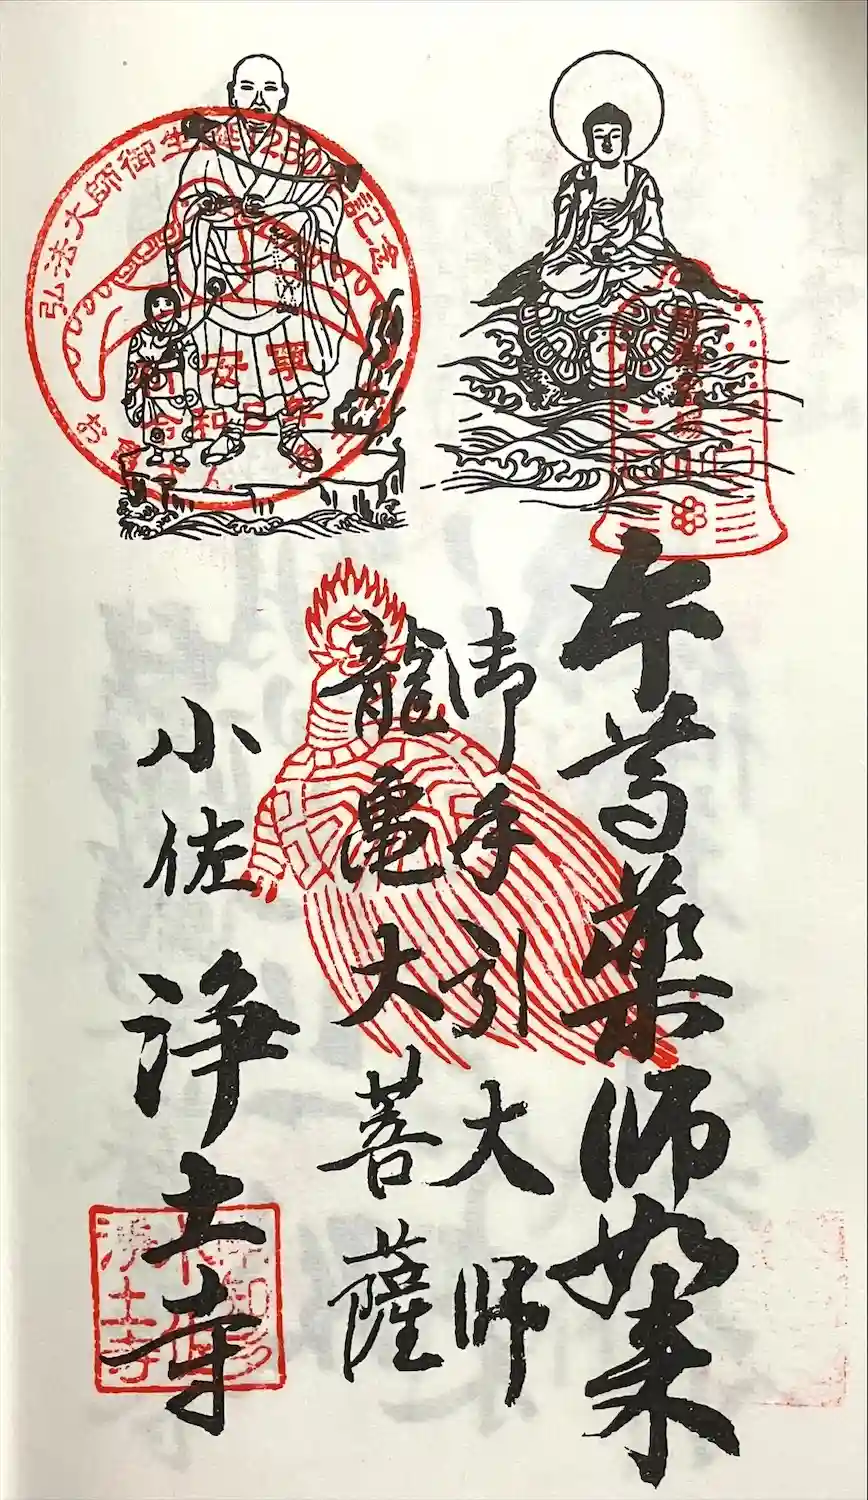 本尊薬師如来
御手引大師
龍亀大菩薩
小佐 浄土寺
弘法大師御生誕1250年記念
令和5年
浄土寺